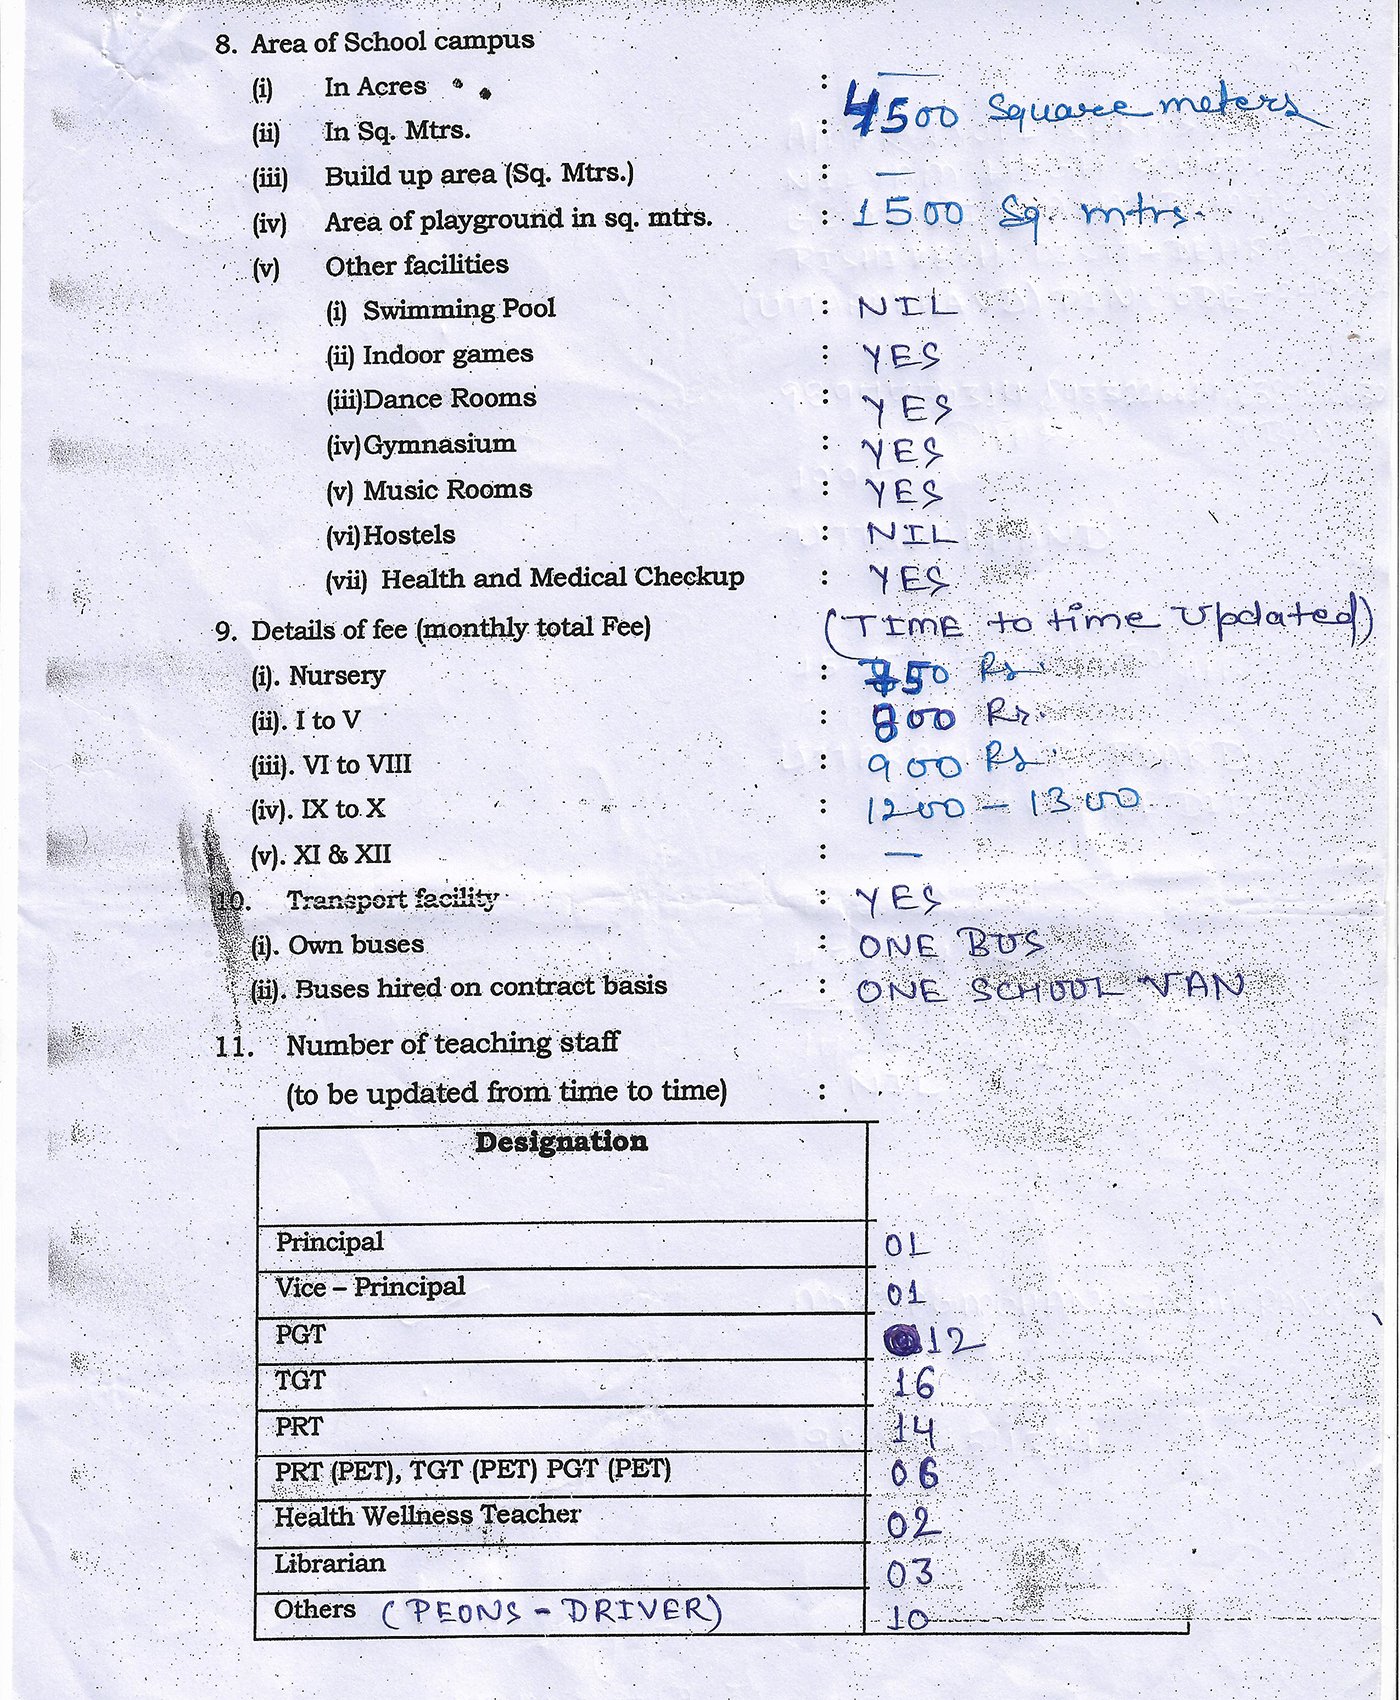 8. Area of School campus
(i) In Acres : —
(ii) In Sq. Mtrs. : 4500 Square meters
(iii) Build up area (Sq. Mtrs.) : —
(iv) Area of playground in sq. mtrs. : 1500 Sq. mtrs.
(v) Other facilities
(i) Swimming Pool : NIL
(ii) Indoor games : YES
(iii) Dance Rooms : YES
(iv) Gymnasium : YES
(v) Music Rooms : YES
(vi) Hostels : NIL
(vii) Health and Medical Checkup : YES
9. Details of fee (monthly total Fee) (TIME to time Updated)
(i). Nursery : Rs.
(ii). I to V : 800 Rs.
(iii). VI to VIII : 900 Rs.
(iv). IX to X : 1200 – 1300
(v). XI & XII : —
10. Transport facility : YES
(i). Own buses : ONE BUS
(ii). Buses hired on contract basis : ONE SCHOOL VAN
11. Number of teaching staff
(to be updated from time to time) :
Designation
Principal 01
Vice – Principal 01
PGT 12
TGT 16
PRT 14
PRT (PET), TGT (PET) PGT (PET) 06
Health Wellness Teacher 02
Librarian 03
Others (PEONS - DRIVER) 10